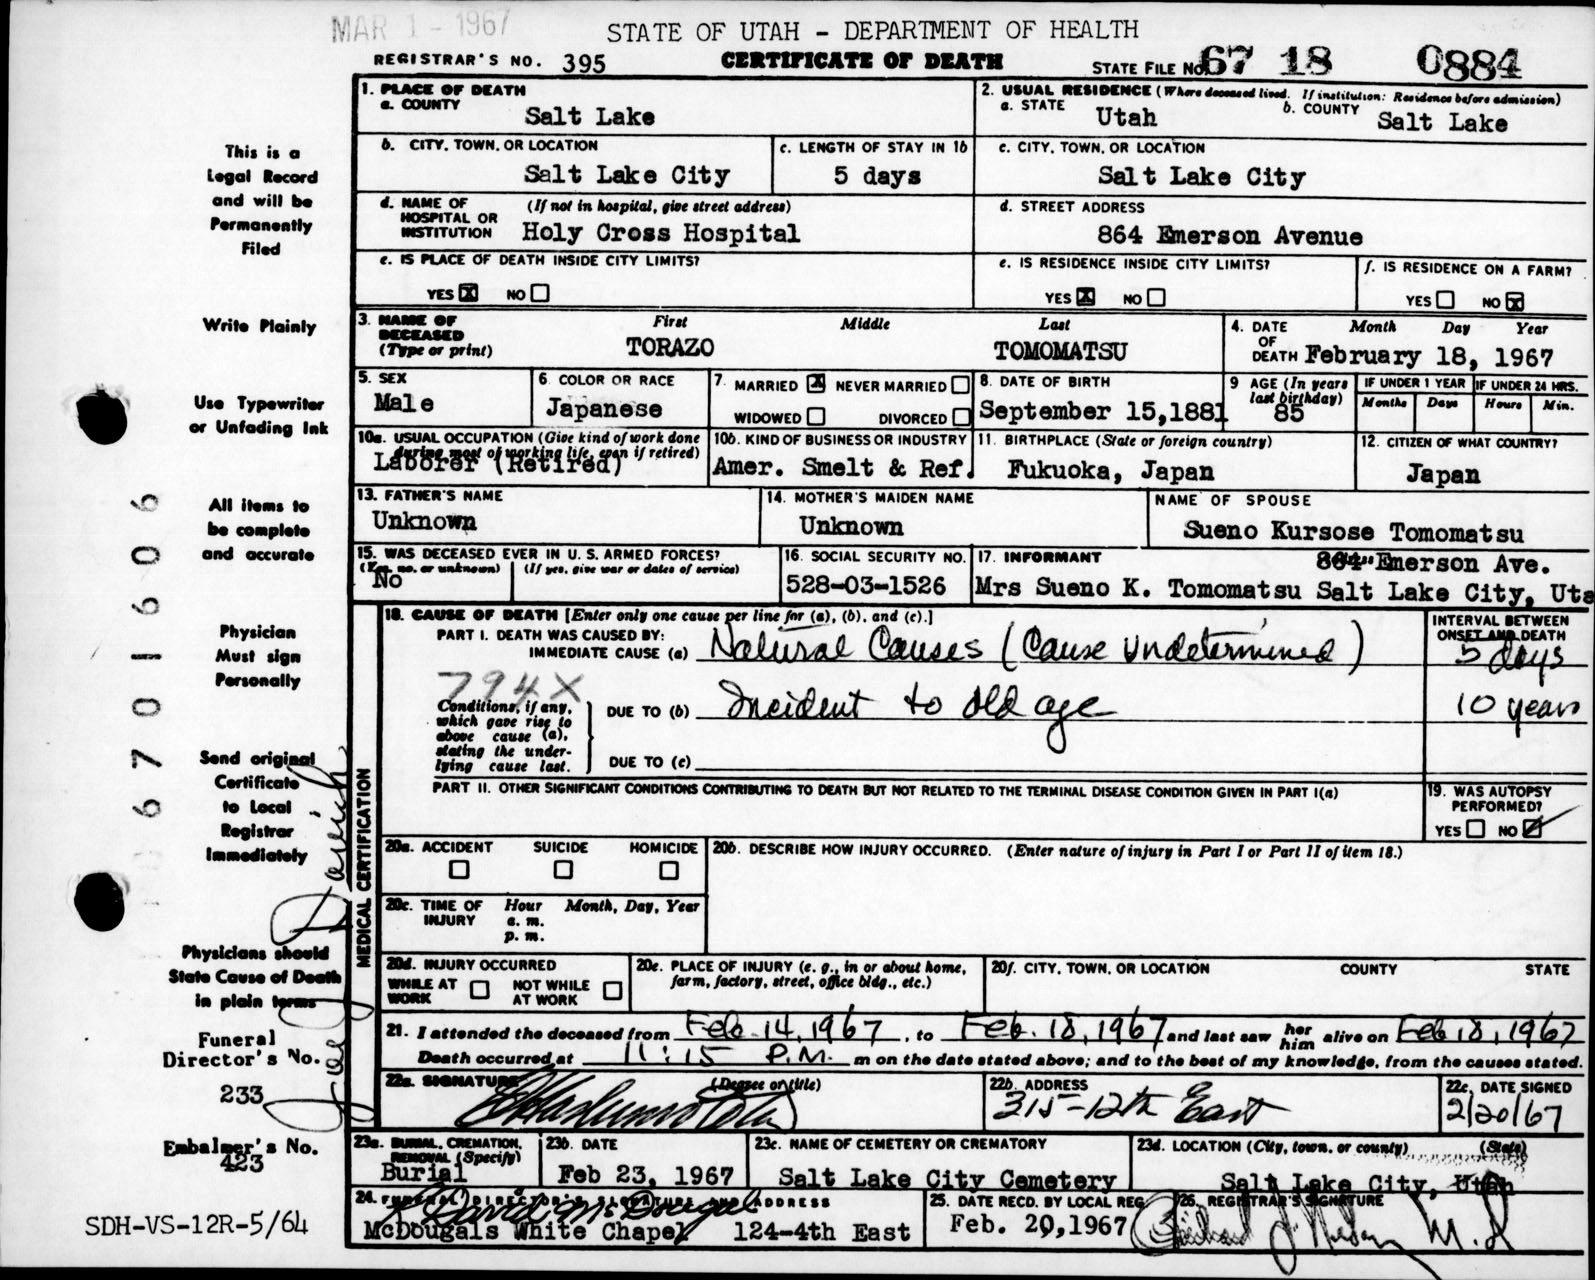 MAR 1 - 1967
STATE OF UTAH - DEPARTMENT OF HEALTH
REGISTRAR'S NO. 395
CERTIFICATE OF DEATH
STATE FILE NO. 67 18 0884
1. PLACE OF DEATH
a. COUNTY
Salt Lake
2. USUAL RESIDENCE (Where deceased lived. If institution: Residence before admission)
a. STATE
Utah
b. COUNTY
Salt Lake
b. CITY, TOWN, OR LOCATION
Salt Lake City
c. LENGTH OF STAY IN 1b
5 days
c. CITY, TOWN, OR LOCATION
Salt Lake City
d. NAME OF HOSPITAL OR INSTITUTION
(If not in hospital, give street address)
Holy Cross Hospital
d. STREET ADDRESS
864 Emerson Avenue
e. IS PLACE OF DEATH INSIDE CITY LIMITS?
YES X NO
e. IS RESIDENCE INSIDE CITY LIMITS?
YES X NO
f. IS RESIDENCE ON A FARM?
YES NO X
3. NAME OF DECEASED
(Type or print)
First Middle Last
TORAZO TOMOMATSU
4. DATE OF DEATH
Month Day Year
February 18, 1967
5. SEX
Male
6. COLOR OR RACE
Japanese
7. MARRIED X NEVER MARRIED
WIDOWED DIVORCED
8. DATE OF BIRTH
September 15,1881
9 AGE (In years last birthday)
85
IF UNDER 1 YEAR
Months Days
IF UNDER 24 HRS.
Hours Min.
10a. USUAL OCCUPATION (Give kind of work done during most of working life, even if retired)
Laborer (Retired)
10b. KIND OF BUSINESS OR INDUSTRY
Amer. Smelt & Ref.
11. BIRTHPLACE (State or foreign country)
Fukuoka, Japan
12. CITIZEN OF WHAT COUNTRY?
Japan
13. FATHER'S NAME
Unknown
14. MOTHER'S MAIDEN NAME
Unknown
NAME OF SPOUSE
Sueno Kursose Tomomatsu
15. WAS DECEASED EVER IN U. S. ARMED FORCES?
(Yes, no, or unknown) (If yes, give war or dates of service)
No
16. SOCIAL SECURITY NO.
528-03-1526
17. INFORMANT
864 Emerson Ave.
Mrs Sueno K. Tomomatsu Salt Lake City, Uta
18. CAUSE OF DEATH [Enter only one cause per line for (a), (b), and (c).]
PART I. DEATH WAS CAUSED BY:
IMMEDIATE CAUSE (a) Natural Causes (Cause Undetermined)
INTERVAL BETWEEN ONSET AND DEATH
5 days
794X
Conditions, if any, which gave rise to above cause (a), stating the underlying cause last.
DUE TO (b) Incident to old age
10 years
DUE TO (c)
PART II. OTHER SIGNIFICANT CONDITIONS CONTRIBUTING TO DEATH BUT NOT RELATED TO THE TERMINAL DISEASE CONDITION GIVEN IN PART I(a)
19. WAS AUTOPSY PERFORMED?
YES NO
20a. ACCIDENT SUICIDE HOMICIDE
20b. DESCRIBE HOW INJURY OCCURRED. (Enter nature of injury in Part I or Part II of item 18.)
20c. TIME OF INJURY
Hour Month, Day, Year
a. m.
p. m.
20d. INJURY OCCURRED
WHILE AT WORK NOT WHILE AT WORK
20e. PLACE OF INJURY (e. g., in or about home, farm, factory, street, office bldg., etc.)
20f. CITY, TOWN, OR LOCATION COUNTY STATE
21. I attended the deceased from Feb. 14, 1967, to Feb. 18, 1967 and last saw her him alive on Feb 18, 1967
Death occurred at 11:15 P.M. m on the date stated above; and to the best of my knowledge, from the causes stated.
22a. SIGNATURE (Degree or title)
22b. ADDRESS
315-12th East
22c. DATE SIGNED
2/20/67
23a. BURIAL, CREMATION, REMOVAL (Specify)
Burial
23b. DATE
Feb 23, 1967
23c. NAME OF CEMETERY OR CREMATORY
Salt Lake City Cemetery
23d. LOCATION (City, town, or county) (State)
Salt Lake City, Utah
24. FUNERAL DIRECTOR'S SIGNATURE AND ADDRESS
David McDougal
McDougals White Chapel 124-4th East
25. DATE RECD. BY LOCAL REG.
Feb. 20,1967
26. REGISTRAR'S SIGNATURE
M.D
This is a
Legal Record
and will be
Permanently
Filed
Write Plainly
Use Typewriter
or Unfading Ink
All items to
be complete
and accurate
Physician
Must sign
Personally
Send original
Certificate
to Local
Registrar
Immediately
Physicians should
State Cause of Death
in plain terms
Funeral
Director's No.
233
Embalmer's No.
423
SDH-VS-12R-5/64
MEDICAL CERTIFICATION
6701606